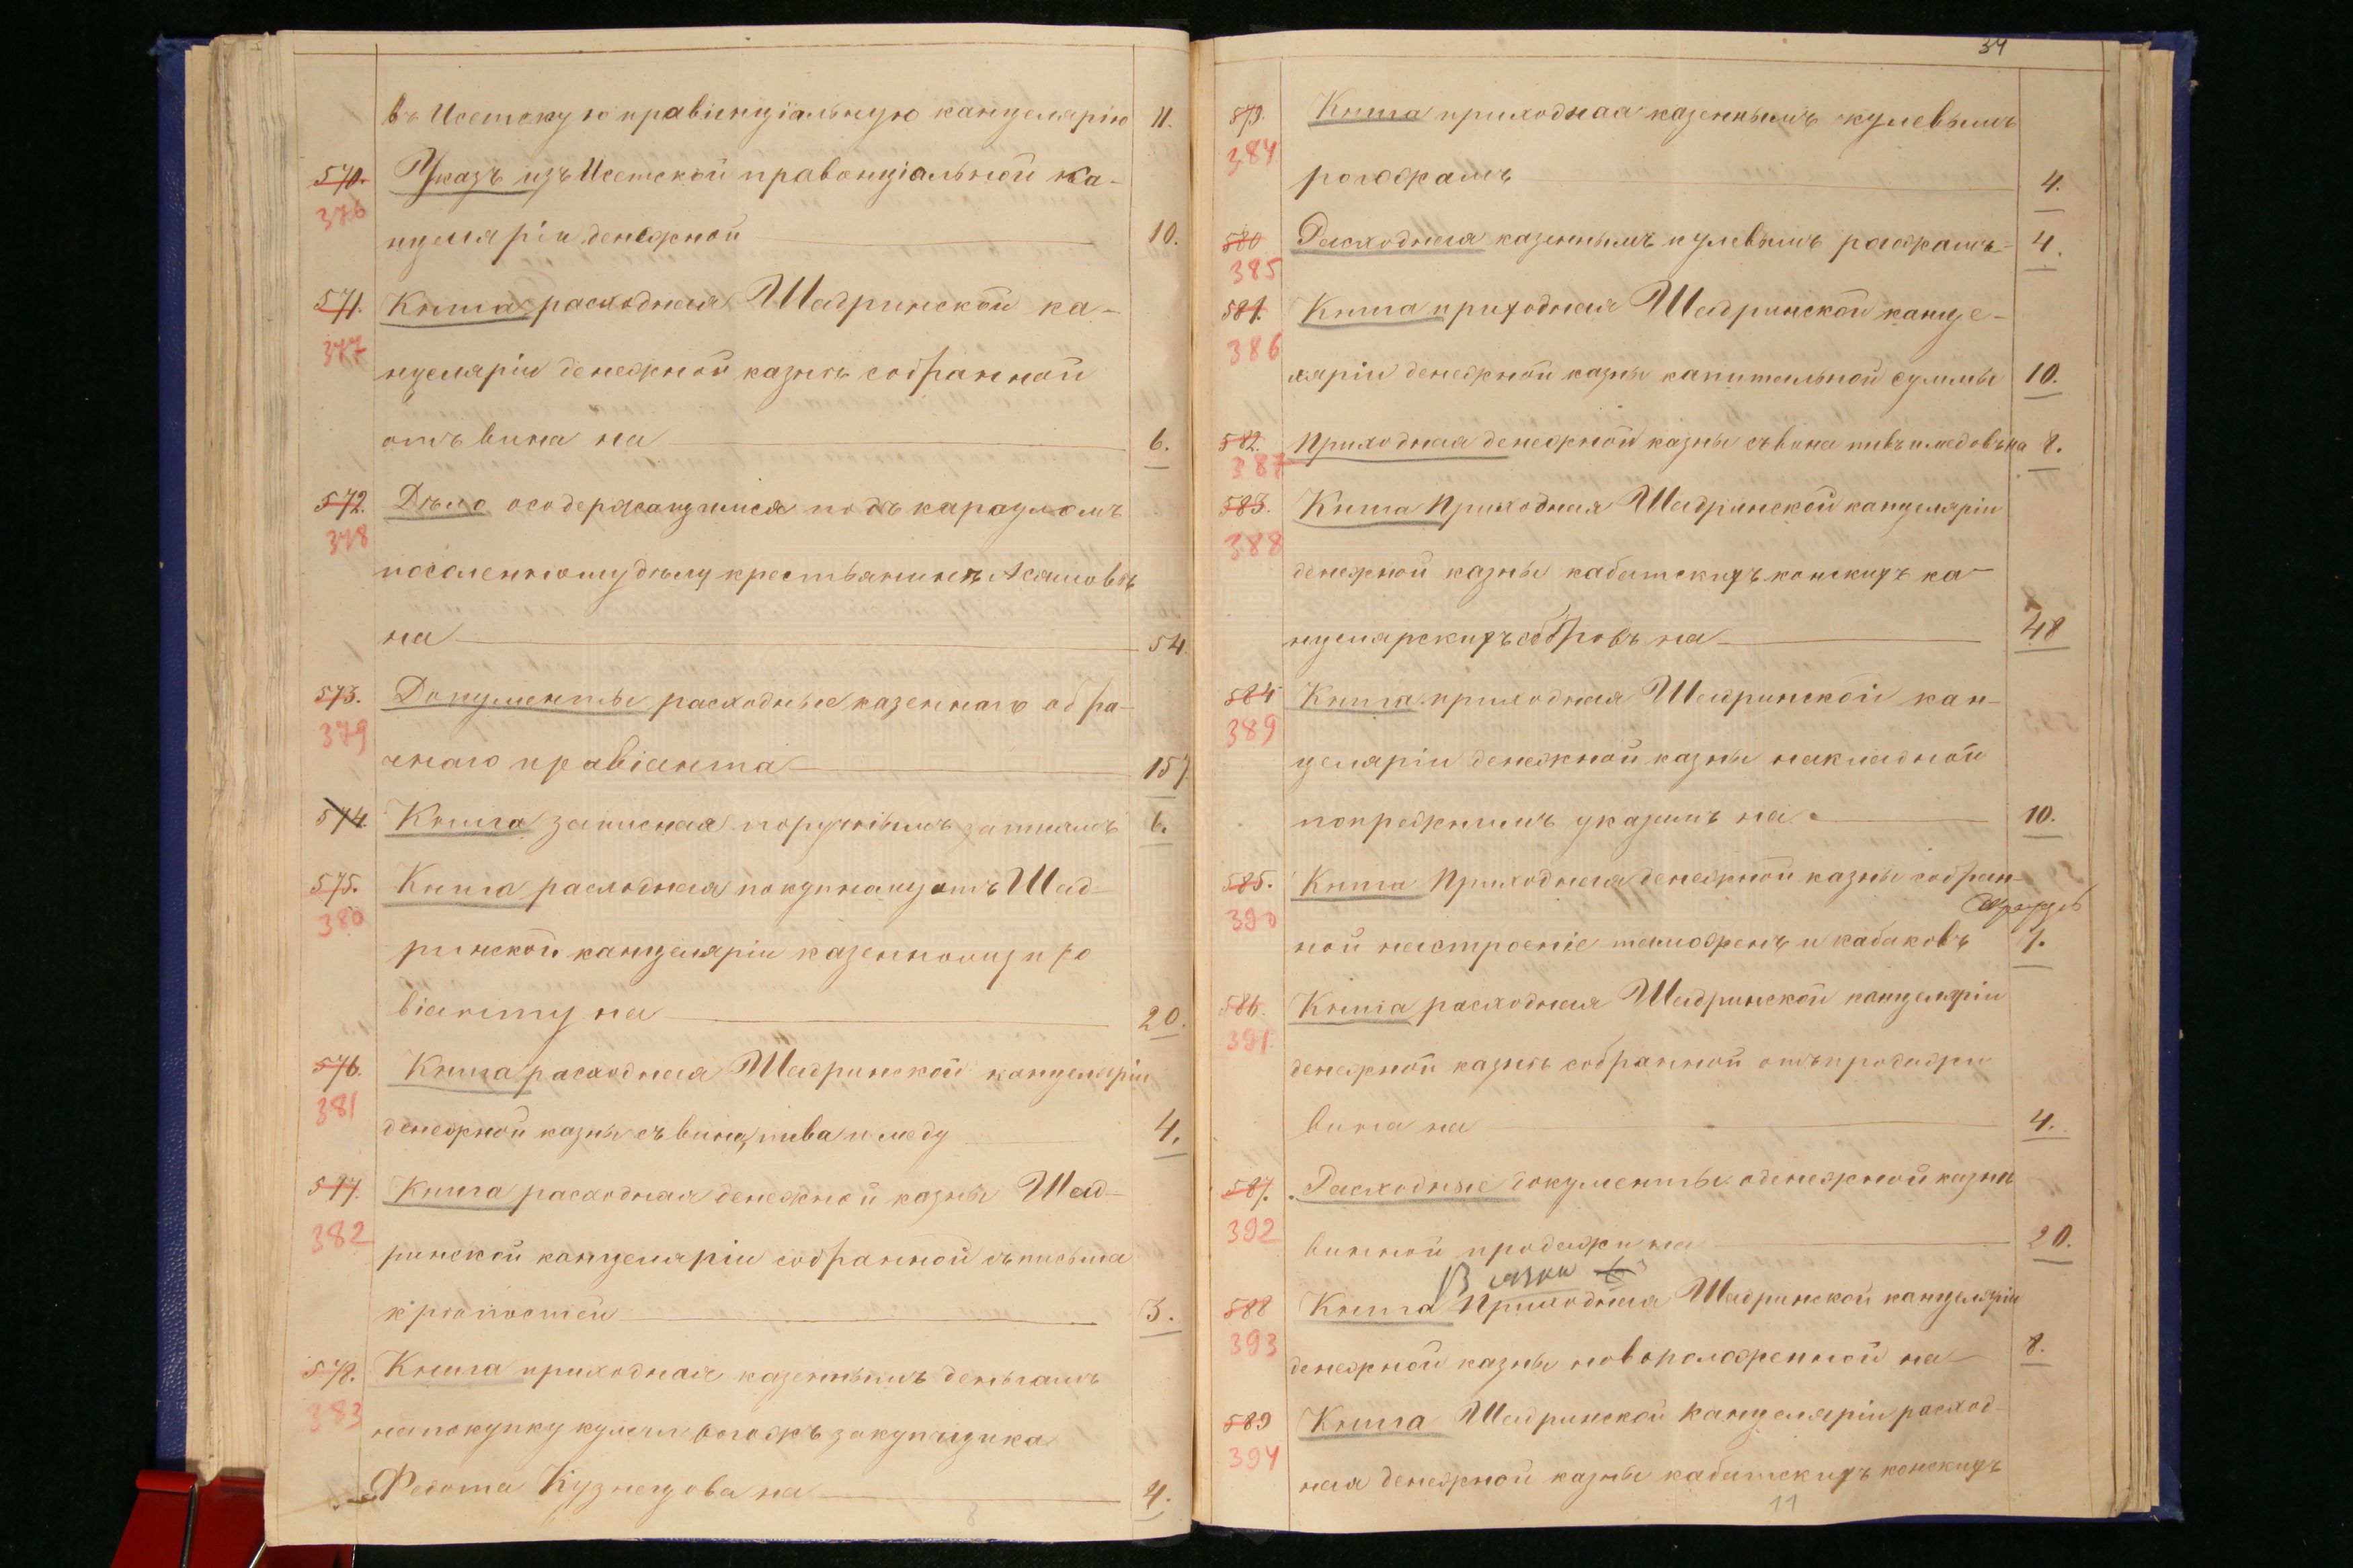 въ Исетскую правінціальную канцелярію 11.
570. Указъ изъ Исетской правонціальной ка-
376
нцеляріи денежной 10.
571. Книга расходная Шадринской ка-
377
нцеляріи денежной казны собранной
отъ вина на 6.
572. Дѣло осодержащимся подъ карауломъ
378
на 54.
573. Документы расходные казеннаго обра-
379
чнаго правіанта 157
574. Книга записная поручнымъ запискамъ 6.
575. Книга расходная Шад-
380
ринской канцеляріи казенному про
віанту на 20.
576. Книга расходная Шадринской канцеляріи
381
денежной казны съ вина, пива и меду 4.
577. Книга расходная денежной казны Шад-
382
ринской канцеляріи собранной съ письма
крѣпостей 3.
578. Книга приходная казеннымъ деньгамъ
383
на покупку кулей и рогожъ закупщика
Федота Кузнецова на 4.
34
579. Книга приходная казеннымъ кулевымъ
384
рогожкамъ 4.
580 Расходная казеннымъ кулевымъ рагожамъ 4.
385
581. Книга приходная Шадринской канце-
386
ляріи денежной казны капитальной суммы 10.
582. Приходная денежной казны съ вина пивъ и медовъ на 8.
387
583. Книга Приходная Шадринской канцеляріи
388
денежной казны кабатскихъ конскихъ ка-
нцелярскихъ сборовъ на 48
584 Книга приходная Шадринской кан-
389
целяріи денежной казны накладной
попрежнимъ указамъ на 10.
585. Книга Приходная денежной казны собран-
390
ной настроеніе таможенъ и кабаковъ 1.
586. Книга расходная Шадринской канцеляріи
391.
денежной казны собранной отъ продажи
вина на 4.
587. Расходные документы о денежной казнѣ
392
винной продажи на 20.
В связи 6
588 Книга Приходная Шадринской канцеляріи
393
денежной казны новоположенной на 8.
589 Книга Шадринской Канцеляріи расход-
394
ная денежной казны кабатскихъ конскихъ
11